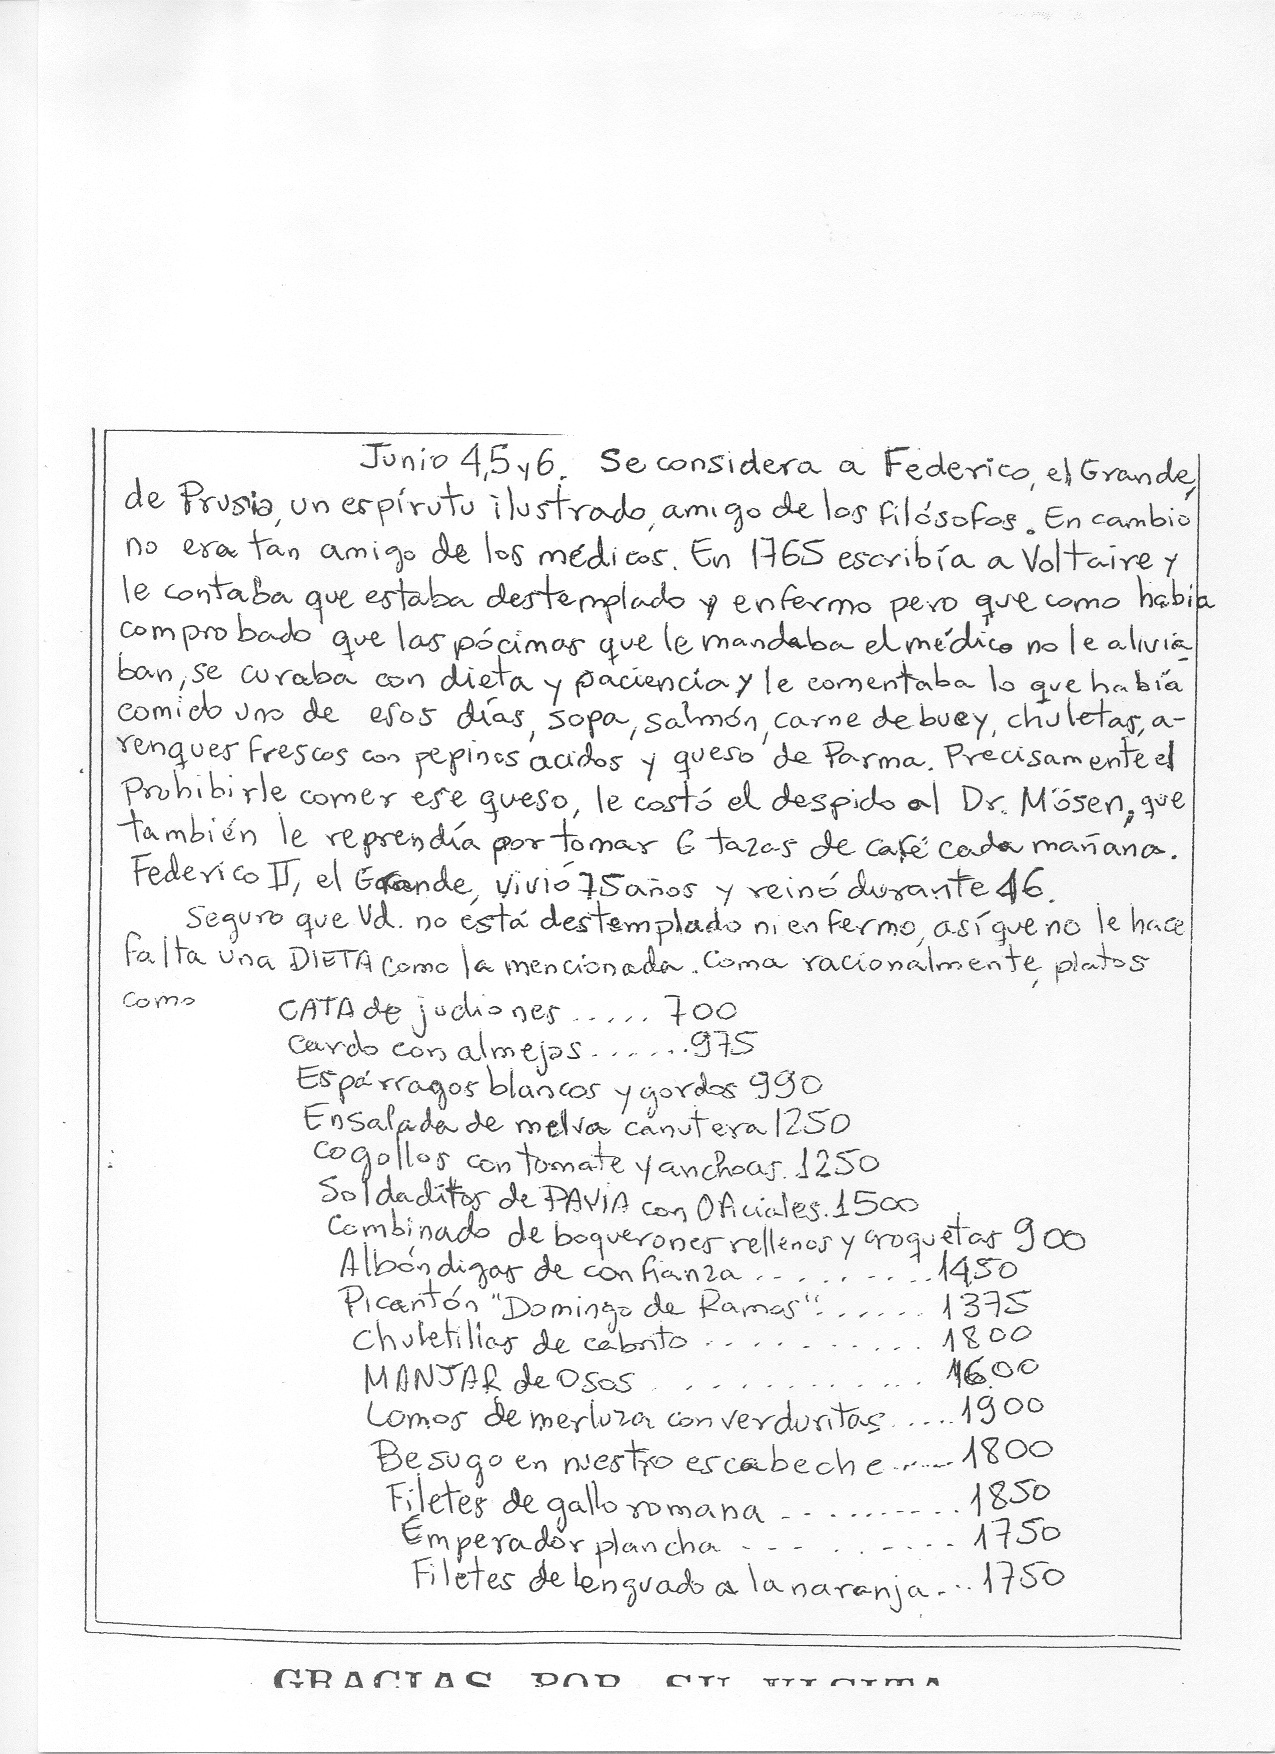 Junio 4,5 y 6. Se considera a Federico, el Grande,
de Prusia, un espírutu ilustrado, amigo de los filósofos. En cambio
no era tan amigo de los médicos. En 1765 escribía a Voltaire y
le contaba que estaba destemplado y enfermo pero que como había
comprobado que las pócimas que le mandaba el médico no le alivia
ban, se curaba con dieta y paciencia y le comentaba lo que había
comido uno de esos días, sopa, salmón, carne de buey, chuletas, a-
renques frescos con pepinos acidos y queso de Parma. Precisamente el
Prohibirle comer ese queso, le costó el despido al Dr. Mösen, que
también le reprendía por tomar 6 tazas de café cada mañana.
Federico II, el Grande, vivió 75 años y reinó durante 46.
Seguro que Vd. no está destemplado ni enfermo, así que no le hace
falta una DIETA como la mencionada. Coma racionalmente, platos
como CATA de judiones ..... 700
Cardo con almejas.......975
Espárragos blancos y gordos 990
Ensalada de melva canutera 1250
Cogollos con tomate y anchoas. 1250
Soldaditos de PAVIA con Oficiales. 1500
Combinado de boquerones rellenos y croquetas 900
Albóndigas de confianza .........1450
Picantón "Domingo de Ramos"....... 1375
Chuletillas de cabrito ........... 1800
MANJAR de Osos ............ 1600
Lomos de merluza con verduritas .....1900
Besugo en nuestro escabeche ...... 1800
Filetes de gallo romana ..........1850
Emperador plancha .......... 1750
Filetes de lenguado a la naranja... 1750
GRACIAS POR SU VISITA